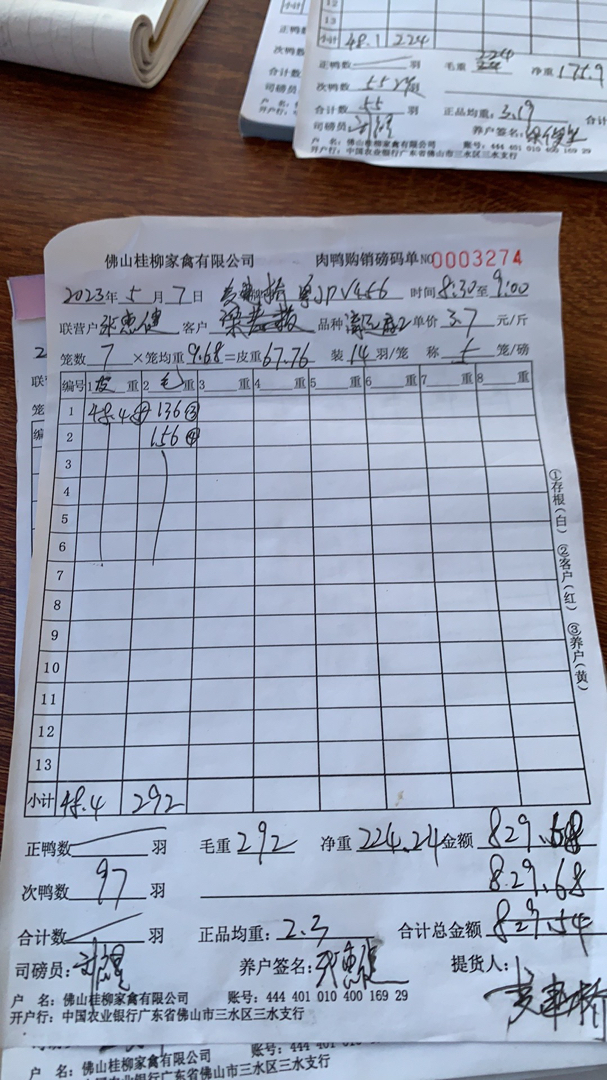 12
13
小计 48.1 224
正鸭数 羽 毛重 224 净重 175.9
次鸭数 55 羽
合计数 55 羽 正品均重: 3.19 合计
司磅员: 养户签名:
户 名: 佛山桂柳家禽有限公司 账号: 444 401 010 400 169 29
开户行: 中国农业银行广东省佛山市三水区三水支行
佛山桂柳家禽有限公司 肉鸭购销磅码单 NO 0003274
2023年 5 月 7 日 时间 8:30 至 9:00
联营户 客户 品种 单价 3.7 元/斤
笼数 7 ×笼均重 9.68 =皮重 67.76 装 14 羽/笼 称 5 笼/磅
编号 1 皮 重 2 毛 重 3 重 4 重 5 重 6 重 7 重 8 重
1 48.4 ⑤ 136 ③
2 156 ④
3
4
5
6
7
8
9
10
11
12
13
小计 48.4 292
①存根(白) ②客户(红) ③养户(黄)
正鸭数 羽 毛重 292 净重 224.24 金额 829.68
次鸭数 97 羽 829.68
合计数 羽 正品均重: 2.3 合计总金额 829.54
司磅员: 养户签名: 提货人:
户 名: 佛山桂柳家禽有限公司 账号: 444 401 010 400 169 29
开户行: 中国农业银行广东省佛山市三水区三水支行
户 名: 佛山桂柳家禽有限公司 账号: 444 401 010 400 169 29